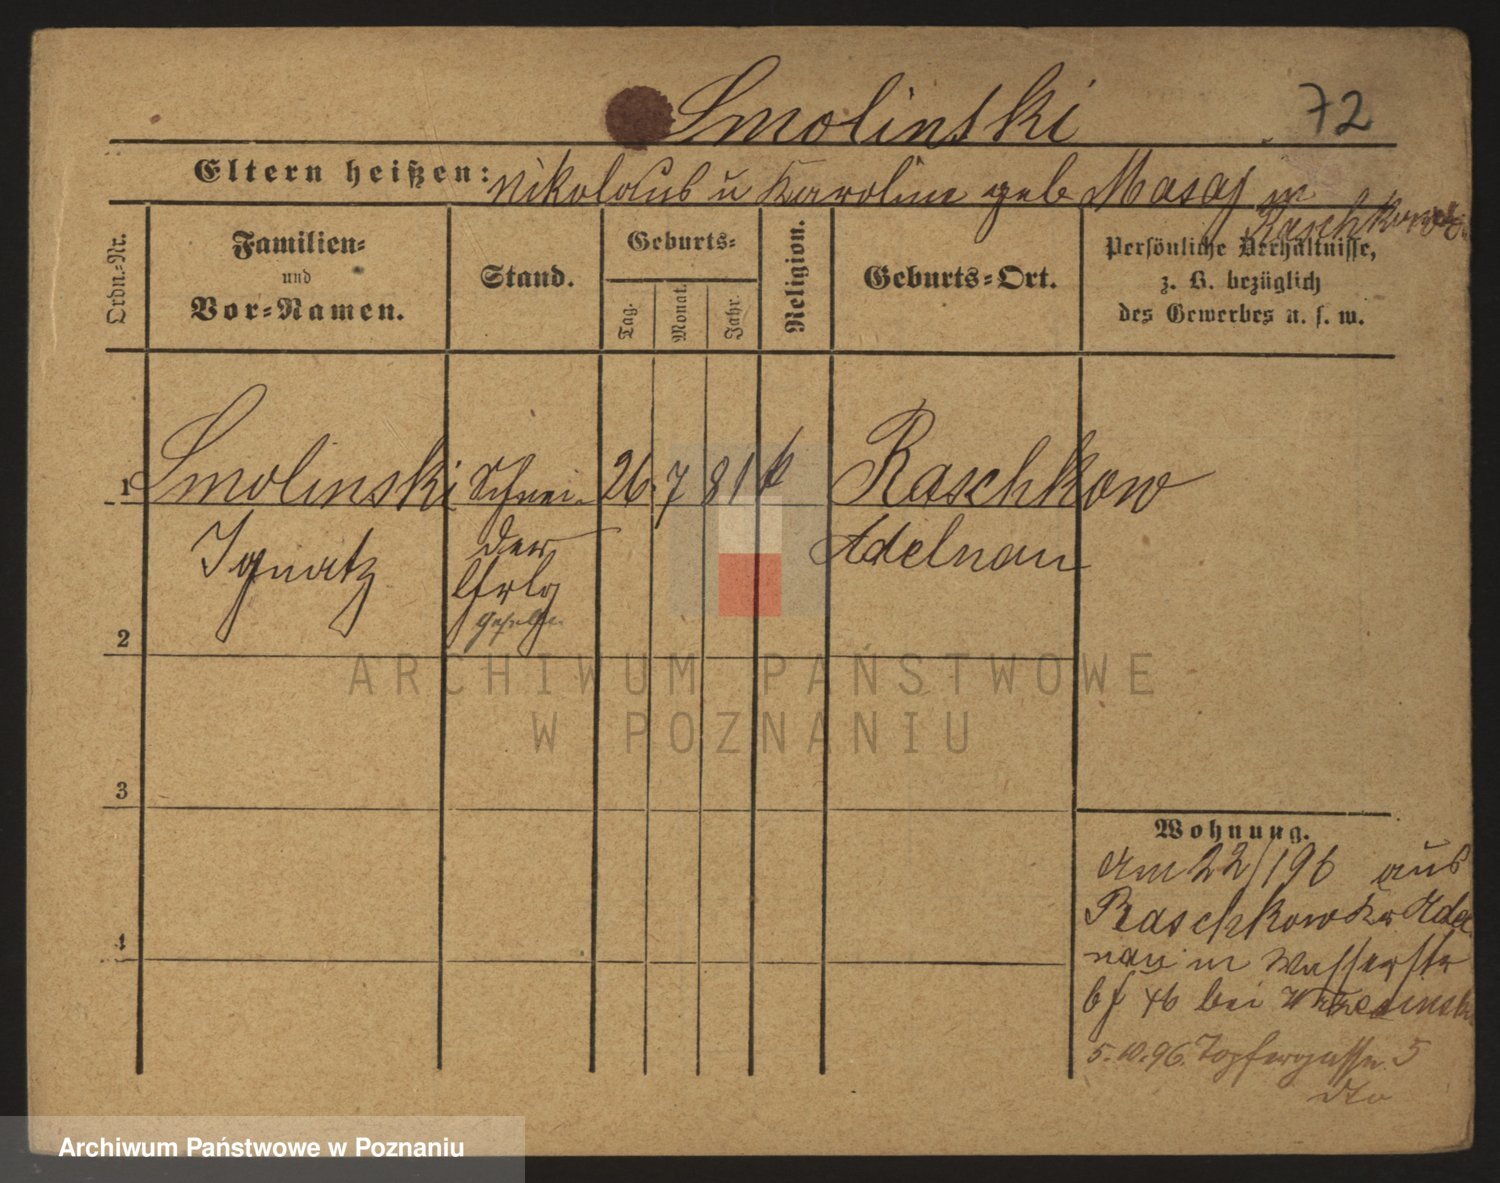 Smolinski
72
Eltern heißen: Nikolaus u Karoline geb Masaj in
Raschkow
Ordn.-Nr.
Familien-
und
Vor-Namen.
Stand.
Geburts-
Tag.
Monat.
Jahr.
Religion.
Geburts-Ort.
Persönliche Verhältnisse,
z. B. bezüglich
des Gewerbes u. s. w.
1 Smolinski Schnei- 26. 7 81 k Raschkow
Ignatz der Adelnau
lhrlg
2
3
4
Wohnung.
Am 22/1 96 aus
Raschkow Kr Adel
nau in Wasserstr
bei
5.10.96. Topfergasse 5
dto
ARCHIWUM PAŃSTWOWE
W POZNANIU
Archiwum Państwowe w Poznaniu